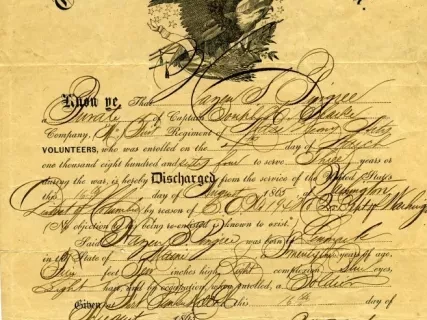 Know ye, That Hazen S. Pingree
a Private of Captain Joseph W.
Company, First Regiment of Mass Heavy Arty
VOLUNTEERS, who was enrolled on the day of March
one thousand eight hundred and sixty four to serve Three years or
during the war, is hereby Discharged from the service of the United States
this 16th day of August 1865 at Washington
District of Columbia by reason of
(No objection to his being re-enlisted is known to exist.)
Said Hazen S. Pingree was born in Denmark
in the State of Maine is Twenty years of age,
Five feet Ten inches high, Light complexion, Blue eyes,
Light hair, and by occupation, when enrolled, a
Given at Fort this 16th day of
August 1865